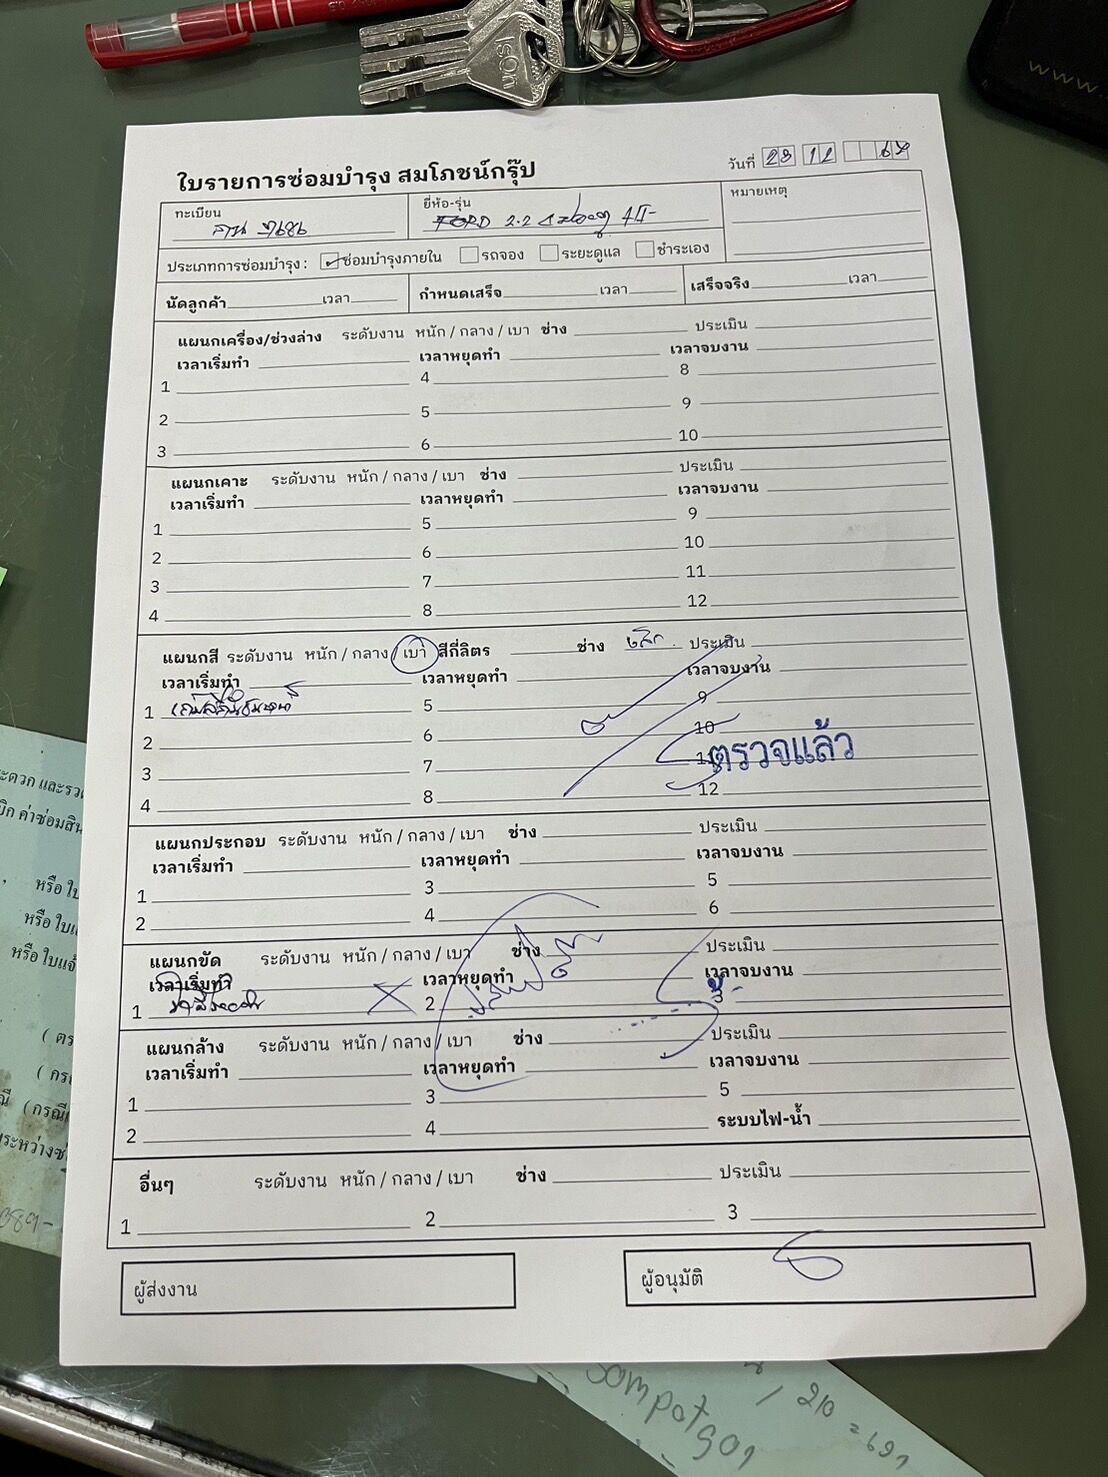 ใบรายการซ่อมบำรุง สมโภชน์กรุ๊ป
วันที่ 23 12 67
ทะเบียน
ยี่ห้อ-รุ่น FORD 2.2
หมายเหตุ
ประเภทการซ่อมบำรุง: ซ่อมบำรุงภายใน รถจอง ระยะดูแล ชำระเอง
นัดลูกค้า เวลา กำหนดเสร็จ เวลา เสร็จจริง เวลา
แผนกเครื่อง/ช่วงล่าง ระดับงาน หนัก / กลาง / เบา ช่าง ประเมิน
เวลาเริ่มทำ เวลาหยุดทำ เวลาจบงาน
1 4 8
2 5 9
3 6 10
แผนกเคาะ ระดับงาน หนัก / กลาง / เบา ช่าง ประเมิน
เวลาเริ่มทำ เวลาหยุดทำ เวลาจบงาน
1 5 9
2 6 10
3 7 11
4 8 12
แผนกสี ระดับงาน หนัก / กลาง / เบา สีกี่ลิตร ช่าง ประเมิน
เวลาเริ่มทำ เวลาหยุดทำ เวลาจบงาน
1 5 9
2 6 10
3 7 11 ตรวจแล้ว
4 8 12
แผนกประกอบ ระดับงาน หนัก / กลาง / เบา ช่าง ประเมิน
เวลาเริ่มทำ เวลาหยุดทำ เวลาจบงาน
1 3 5
2 4 6
แผนกขัด ระดับงาน หนัก / กลาง / เบา ช่าง ประเมิน
เวลาเริ่มทำ เวลาหยุดทำ เวลาจบงาน
1 2 3
แผนกล้าง ระดับงาน หนัก / กลาง / เบา ช่าง ประเมิน
เวลาเริ่มทำ เวลาหยุดทำ เวลาจบงาน
1 3 5
2 4 ระบบไฟ-น้ำ
อื่นๆ ระดับงาน หนัก / กลาง / เบา ช่าง ประเมิน
1 2 3
ผู้ส่งงาน
ผู้อนุมัติ
หรือ ใบ
หรือ ใบแจ้
( ตร
( กร
( กรณี
ระหว่างซ่
/ 210 = 691
www